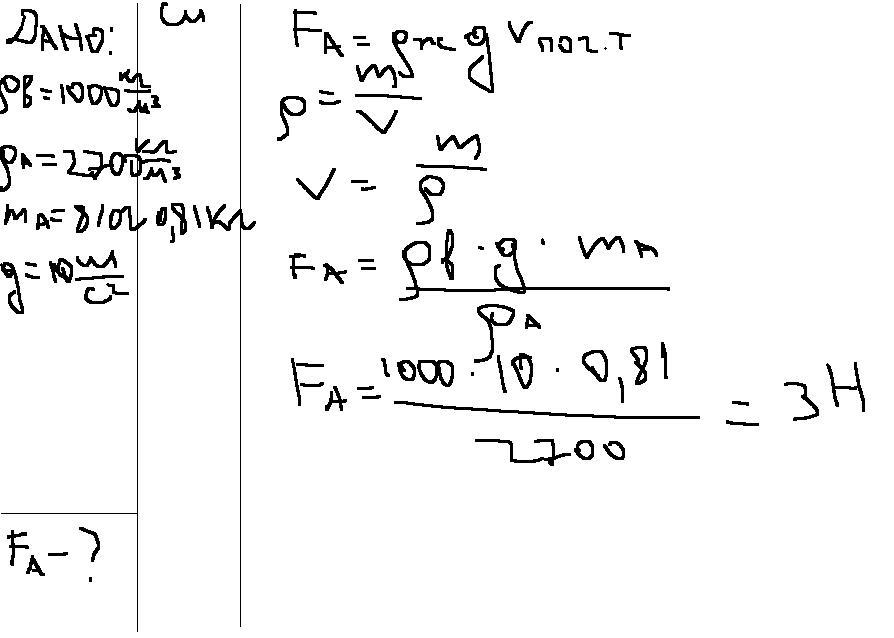 Дано:
Си
ρв = 1000 кг/м³
ρA = 2700 кг/м³
mA = 810г 0,81 кг
g = 10 м/с²
FA – ?
FA = ρж g Vпог.т
ρ = m/V
V = m/ρ
FA = ρв · g · mA / ρA
FA = 1000 · 10 · 0,81 / 2700 = 3 Н